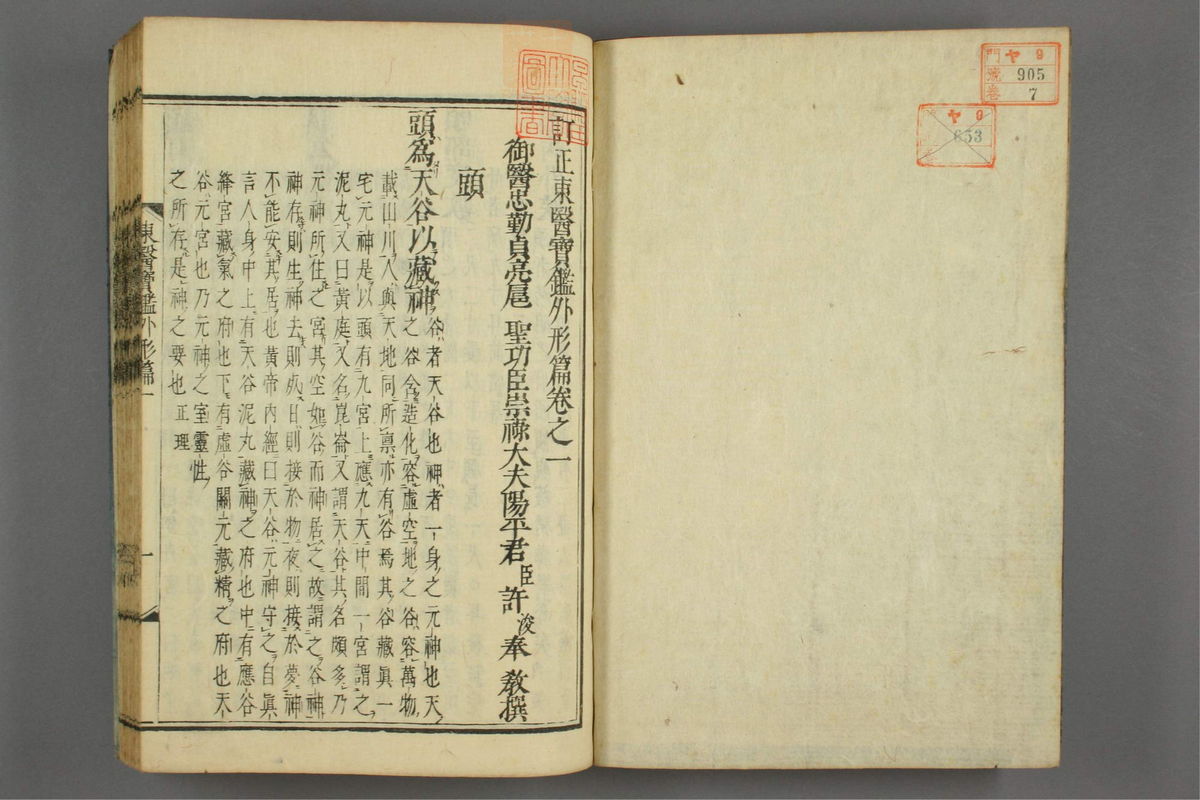 門 ヤ 9
號 905
卷 7
ヤ 9
653
訂正東醫寶鑑外形篇卷之一
御醫忠勤貞亮扈 聖功臣崇祿大夫陽平君臣許浚奉敎撰
頭
頭爲天谷以藏神谷者天谷也神者一身之元神也天
之谷含造化容虛空地之谷容萬物
載山川人與天地同所禀亦有谷焉其谷藏眞一
宅元神是以頭有九宮上應九天中間一宮謂之
泥丸又曰黃庭又名崑崙又謂天谷其名頗多乃
元神所住之宮其空如谷而神居之故謂之谷神
神存則生神去則死日則接於物夜則接於夢神
不能安其居也黃帝內經曰天谷元神守之自眞
言人身中上有天谷泥丸藏神之府也中有應谷
絳宮藏氣之府也下有虛谷關元藏精之府也天
谷元宮也乃元神之室靈性
之所存是神之要也正理
東醫寶鑑外形篇一
一